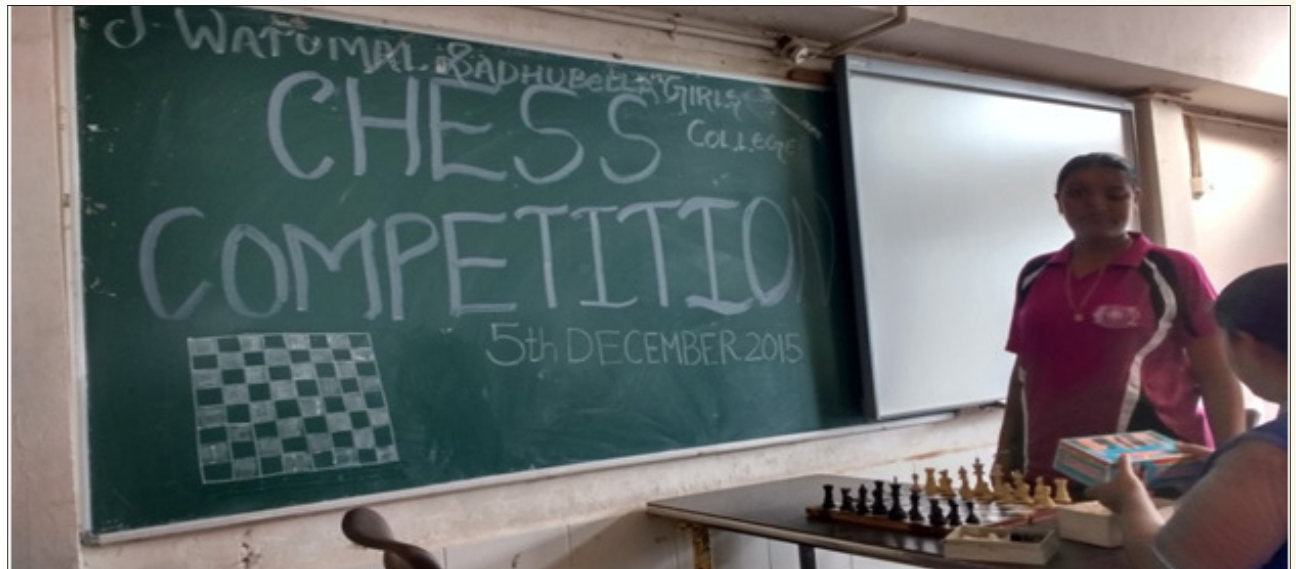 J. WATUMAL SADHUBELLA GIRLS
COLLEGE
CHESS
COMPETITION
5th DECEMBER 2015